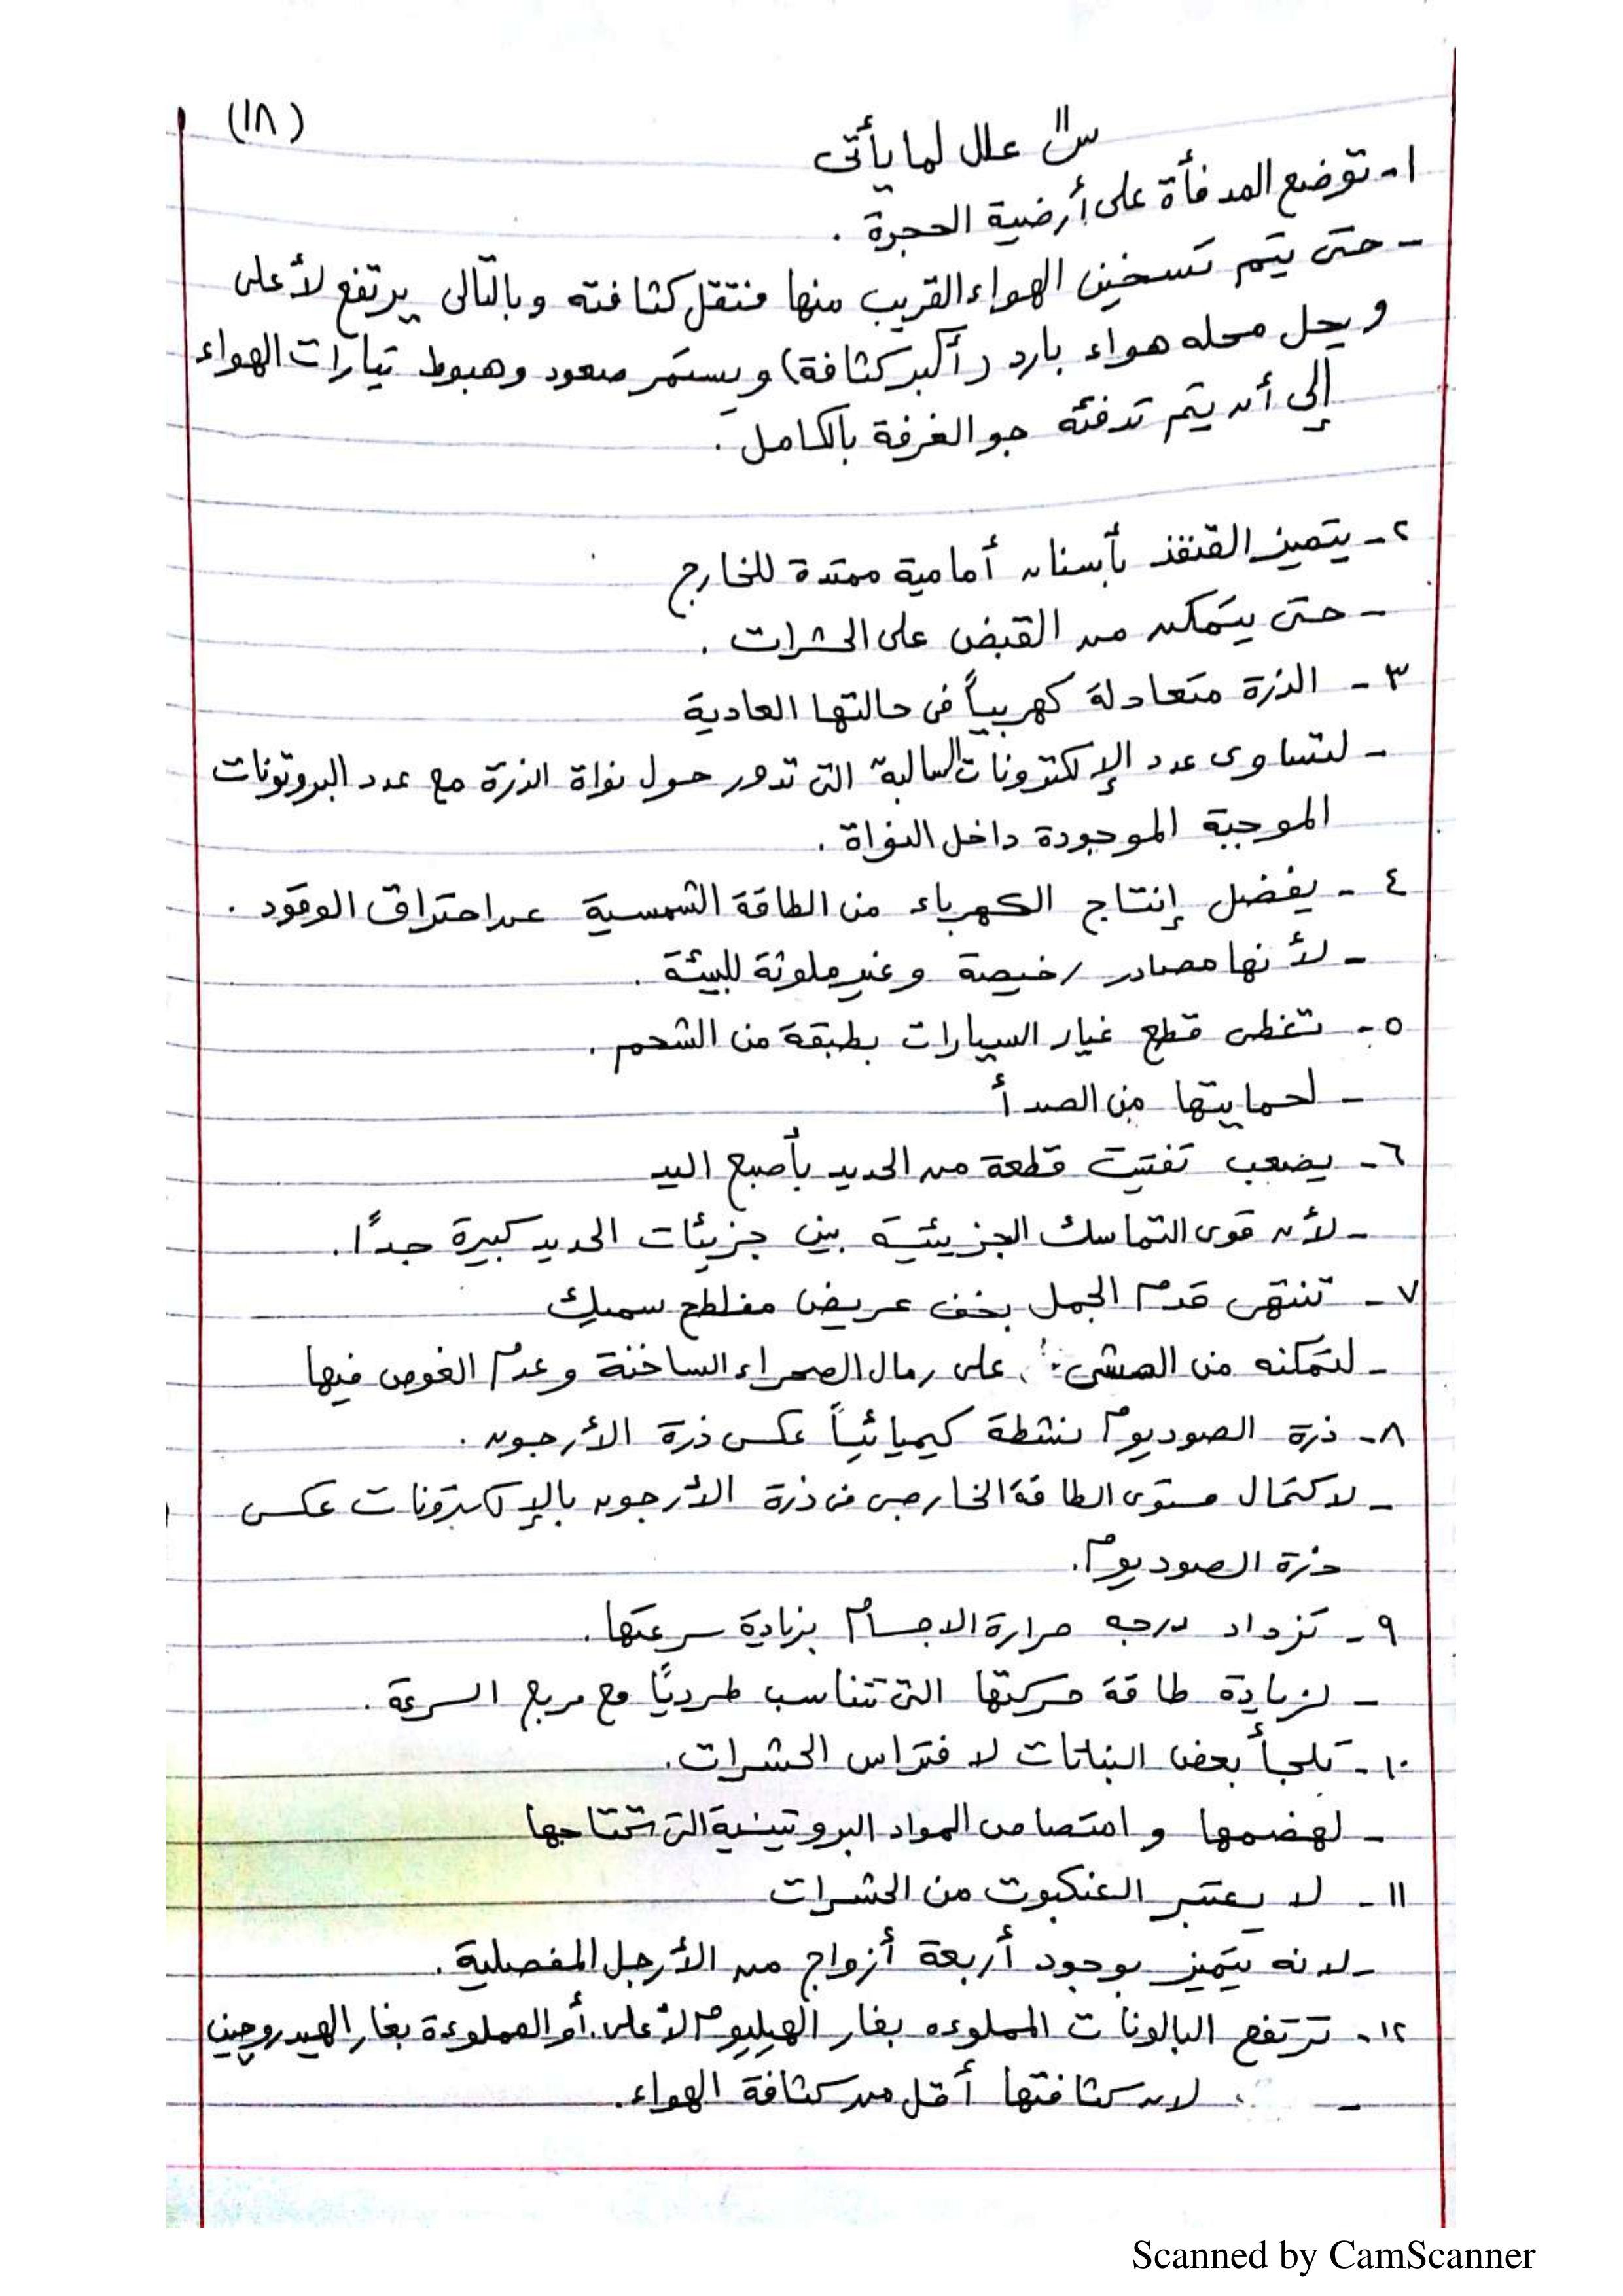 (١٨)
س١١ علل لما يأتى
١- توضع المدفأة على أرضية الحجرة .
- حتى يتم تسخين الهواء القريب منها فتقل كثافته وبالتالى يرتفع لأعلى
ويحل محله هواء بارد (أكبر كثافة) ويستمر صعود وهبوط تيارات الهواء
إلى أن يتم تدفئه جو الغرفة بالكامل .
٢- يتميز القنفذ بأسنان أمامية ممتدة للخارج
- حتى يتمكن من القبض على الحشرات .
٣ - الذرة متعادلة كهربياً فى حالتها العادية
- لتساوى عدد الإلكترونات السالبة التى تدور حول نواة الذرة مع عدد البروتونات
الموجبة الموجودة داخل النواة .
٤ - يفضل إنتاج الكهرباء من الطاقة الشمسية عن احتراق الوقود .
- لأنها مصادر رخيصة وغير ملوثة للبيئة .
٥- تغطى قطع غيار السيارات بطبقة من الشحم .
- لحمايتها من الصدأ
٦- يصعب تفتيت قطعة من الحديد بأصبع اليد
- لأن قوى التماسك الجزيئية بين جزيئات الحديد كبيرة جداً .
٧ - تنتهى قدم الجمل بخف عريض مفلطح سميك
- لتمكنه من المشى على رمال الصحراء الساخنة وعدم الغوص فيها
٨- ذرة الصوديوم نشطة كيميائياً عكس ذرة الأرجون .
- لاكتمال مستوى الطاقة الخارجى فى ذرة الأرجون بالإلكترونات عكس
ذرة الصوديوم .
٩ - تزداد درجه حرارة الاجسام بزيادة سرعتها .
- لزيادة طاقة حركتها التى تتناسب طردياً مع مربع السرعة .
١٠- تلجأ بعض النباتات لافتراس الحشرات .
- لهضمها وامتصاص المواد البروتينية التى تحتاجها
١١ - لا يعتبر العنكبوت من الحشرات
- لانه يتميز بوجود أربعة أزواج من الأرجل المفصلية .
١٢- ترتفع البالونات المملوءه بغاز الهيليوم لأعلى . أو المملوءة بغاز الهيدروجين
- لان كثافتها أقل من كثافة الهواء .
Scanned by CamScanner